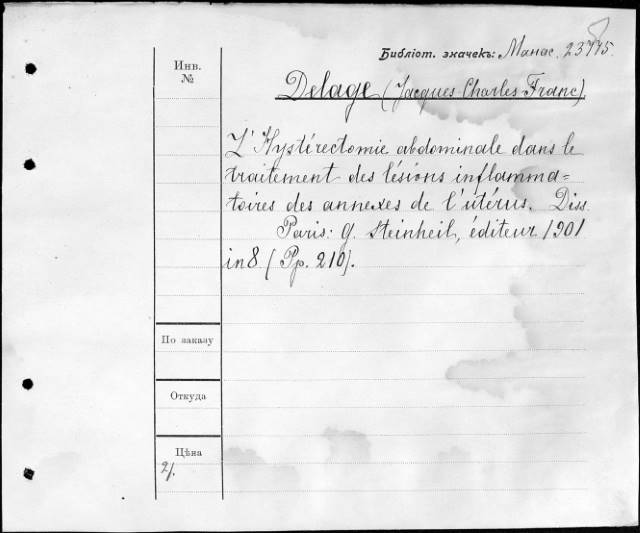 Библіот. значекъ: Манас. 23775.
Инв.
№
Delage (Jacques-Charles-Franc).
L'Hystérectomie abdominale dans le
traitement des lésions inflamma=
toires des annexes de l'utérus. Diss.
Paris: G. Steinheil, éditeur 1901
in 8 (Pp. 210).
По заказу
Откуда
Цѣна
2/.